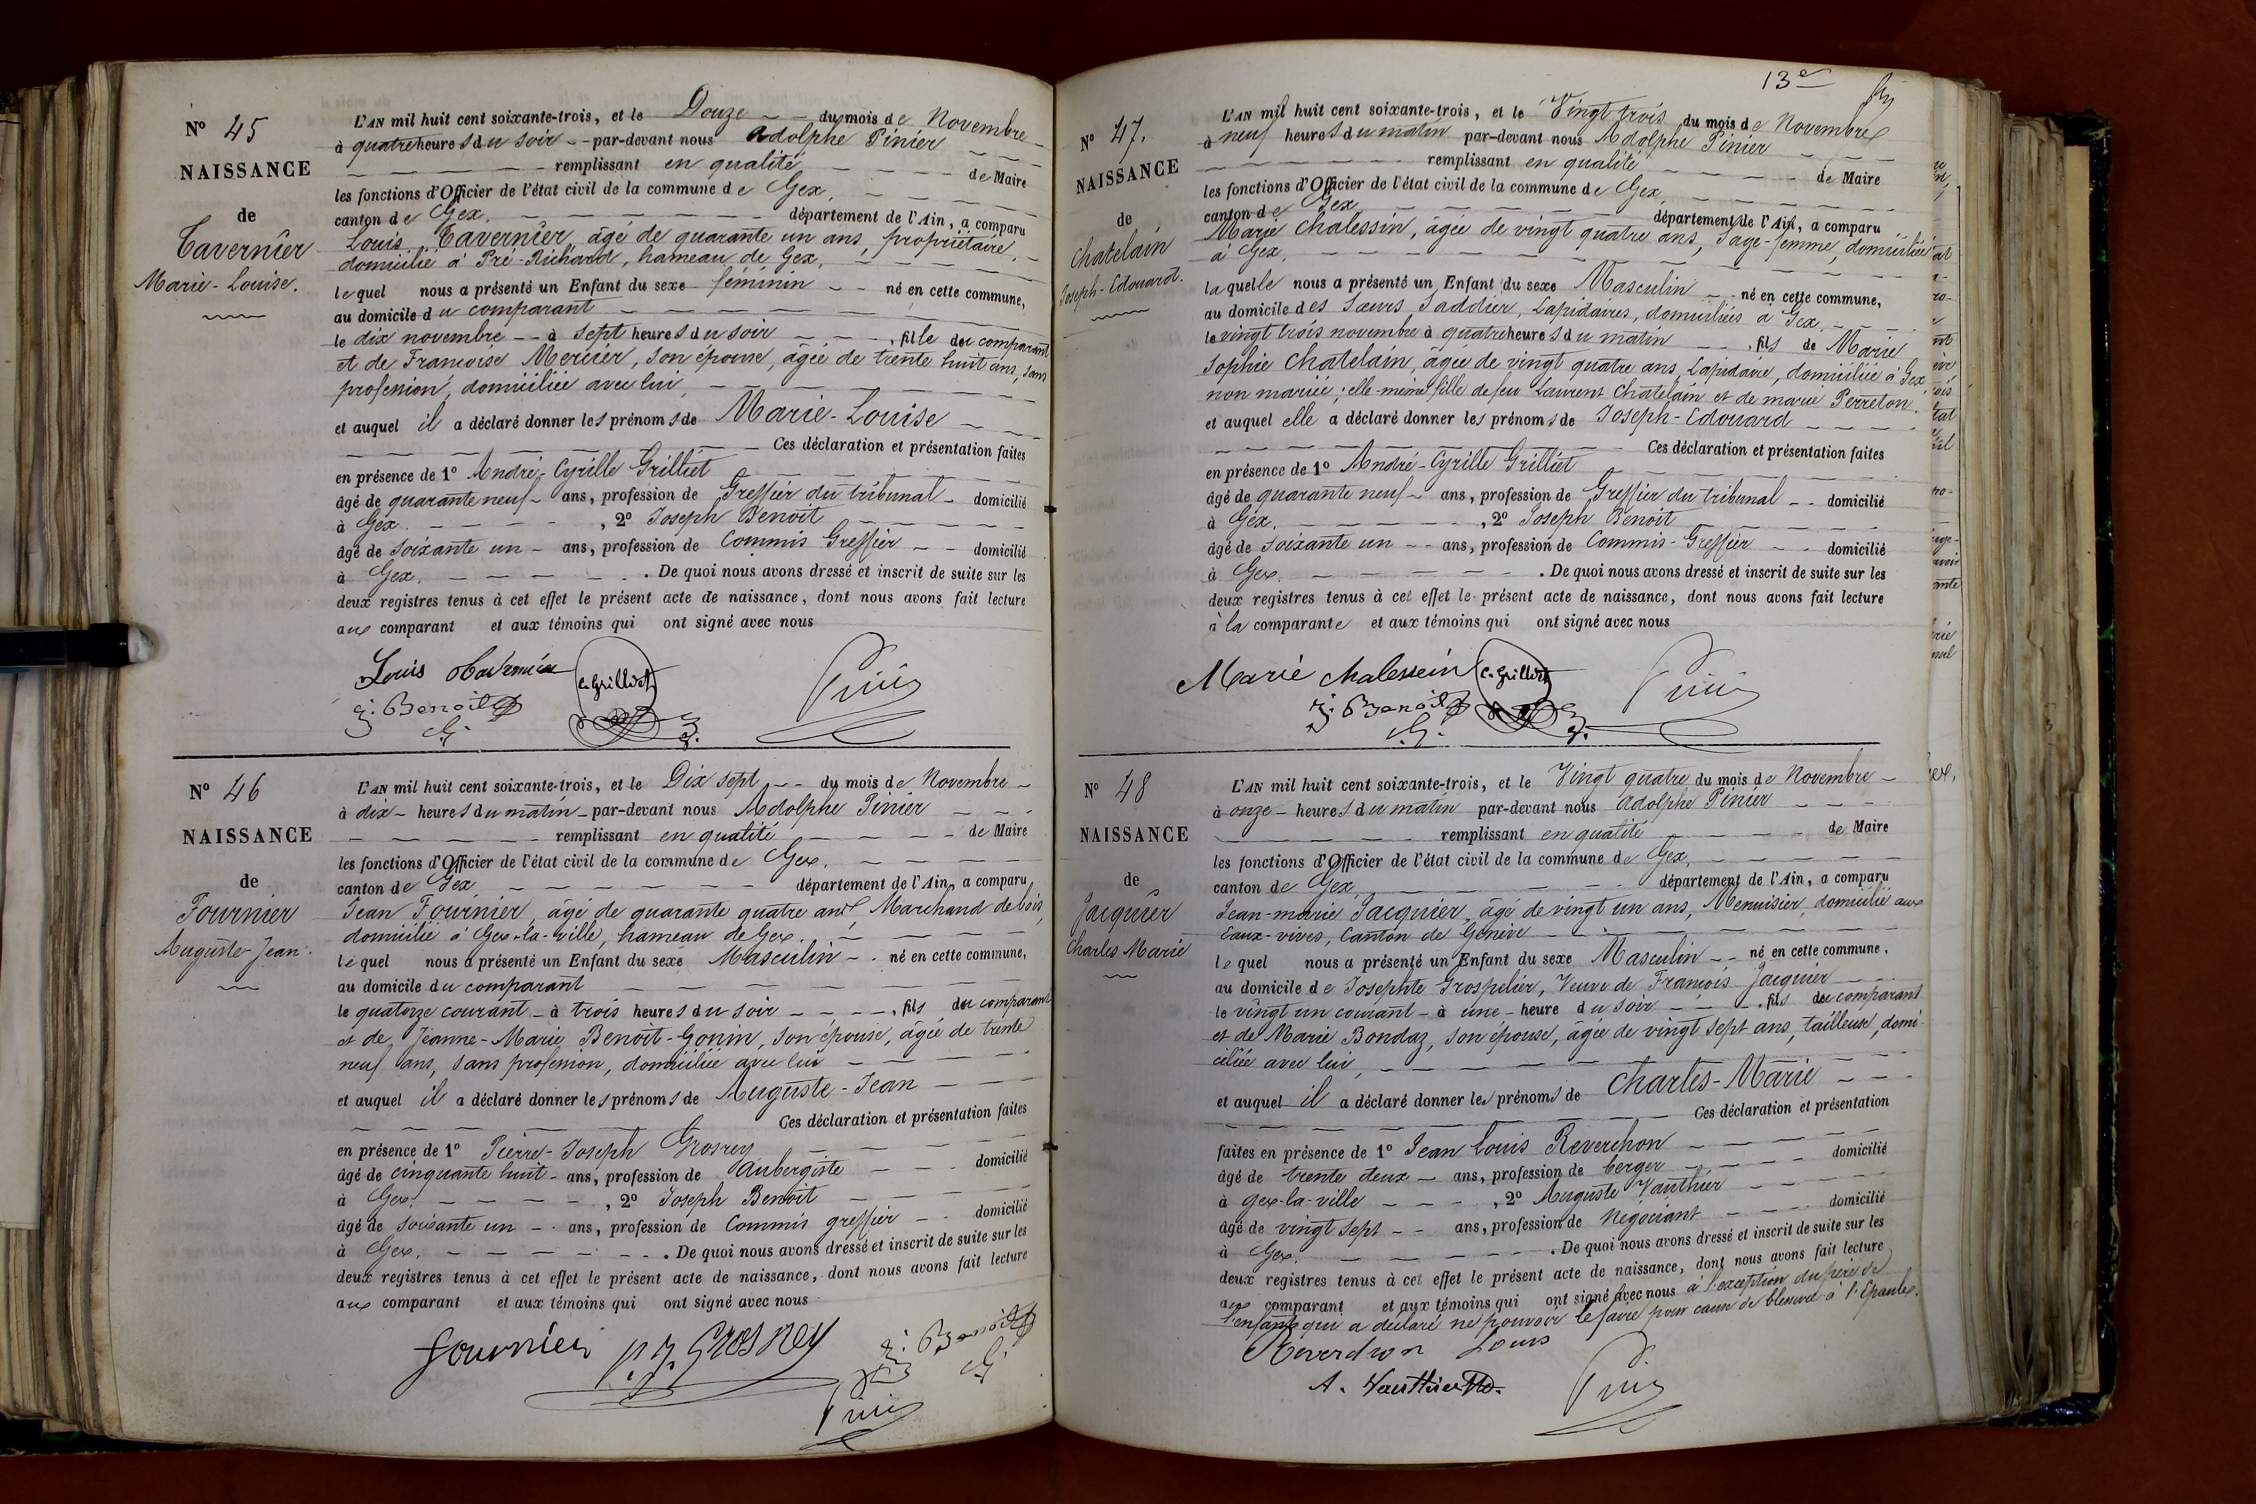 N° 45
NAISSANCE
de
Tavernier
Marie-Louise.
L'AN mil huit cent soixante-trois, et le Douze du mois de Novembre
à quatre heures du soir par-devant nous Adolphe Pinier
remplissant en qualité de Maire
les fonctions d'Officier de l'état civil de la commune de Gex,
canton de Gex, département de l'Ain, a comparu
Louis Tavernier, âgé de quarante un ans, propriétaire,
domicilié à Pré-Richard, hameau de Gex,
lequel nous a présenté un Enfant du sexe féminin né en cette commune,
au domicile du comparant
le dix novembre à sept heures du soir, fille du comparant
et de Françoise Mercier, son épouse, âgée de trente huit ans, sans
profession, domiciliée avec lui,
et auquel il a déclaré donner les prénoms de Marie-Louise
Ces déclaration et présentation faites
en présence de 1° André-Cyrille Grilliet
âgé de quarante neuf ans, profession de Greffier du tribunal domicilié
à Gex. , 2° Joseph Benoit
âgé de soixante un ans, profession de Commis Greffier domicilié
à Gex. . De quoi nous avons dressé et inscrit de suite sur les
deux registres tenus à cet effet le présent acte de naissance, dont nous avons fait lecture
aux comparant et aux témoins qui ont signé avec nous
Louis Tavernier C. Grilliet Pinier
J. Benoit
N° 46
NAISSANCE
de
Fournier
Auguste-Jean.
L'AN mil huit cent soixante-trois, et le Dix sept du mois de Novembre
à dix heures du matin par-devant nous Adolphe Pinier
remplissant en qualité de Maire
les fonctions d'Officier de l'état civil de la commune de Gex.
canton de Gex, département de l'Ain, a comparu
Jean Fournier, âgé de quarante quatre ans, Marchand de bois,
domicilié à Gex-la-ville, hameau de Gex.
lequel nous a présenté un Enfant du sexe Masculin né en cette commune,
au domicile du comparant
le quatorze courant à trois heures du soir, fils du comparant
et de Jeanne-Marie Benoit-Gonin, son épouse, âgée de trente
neuf ans, sans profession, domiciliée avec lui
et auquel il a déclaré donner les prénoms de Auguste-Jean
Ces déclaration et présentation faites
en présence de 1° Pierre-Joseph Grosrey
âgé de cinquante huit ans, profession de Aubergiste domicilié
à Gex. , 2° Joseph Benoit
âgé de soixante un ans, profession de Commis greffier domicilié
à Gex. . De quoi nous avons dressé et inscrit de suite sur les
deux registres tenus à cet effet le présent acte de naissance, dont nous avons fait lecture
aux comparant et aux témoins qui ont signé avec nous
Fournier P.J. Grosrey J. Benoit
Pinier
13e
N° 47.
NAISSANCE
de
Chatelain
Joseph-Edouard.
L'AN mil huit cent soixante-trois, et le Vingt trois du mois de Novembre
à neuf heures du matin par-devant nous Adolphe Pinier
remplissant en qualité de Maire
les fonctions d'Officier de l'état civil de la commune de Gex,
canton de Gex département de l'Ain, a comparu
Marie Chalessin, âgée de vingt quatre ans, Sage-femme, domiciliée
à Gex,
laquelle nous a présenté un Enfant du sexe Masculin né en cette commune,
au domicile des Sœurs Saddier, Lapidaires, domiciliées à Gex,
le vingt trois novembre à quatre heures du matin, fils de Marie
Sophie Chatelain, âgée de vingt quatre ans, Lapidaire, domiciliée à Gex
non mariée; elle-même fille de feu Laurent Chatelain et de marie Perreton.
et auquel elle a déclaré donner les prénoms de Joseph-Edouard
Ces déclaration et présentation faites
en présence de 1° André-Cyrille Grilliet
âgé de quarante neuf ans, profession de Greffier du tribunal domicilié
à Gex. , 2° Joseph Benoit
âgé de soixante un ans, profession de Commis-Greffier domicilié
à Gex. . De quoi nous avons dressé et inscrit de suite sur les
deux registres tenus à cet effet le présent acte de naissance, dont nous avons fait lecture
à la comparante et aux témoins qui ont signé avec nous
Marie Chalessin C. Grilliet Pinier
J. Benoit
N° 48
NAISSANCE
de
Jacquier
Charles Marie
L'AN mil huit cent soixante-trois, et le Vingt quatre du mois de Novembre
à onze heures du matin par-devant nous Adolphe Pinier
remplissant en qualité de Maire
les fonctions d'Officier de l'état civil de la commune de Gex,
canton de Gex, département de l'Ain, a comparu
Jean-marie Jacquier, âgé de vingt un ans, Menuisier, domicilié aux
Eaux-vives, Canton de Genève
lequel nous a présenté un Enfant du sexe Masculin né en cette commune,
au domicile de Josephte Grospelier, Veuve de François Jacquier
le vingt un courant à une heure du soir, fils du comparant
et de Marie Bondaz, son épouse, âgée de vingt sept ans, tailleuse, domi-
ciliée avec lui,
et auquel il a déclaré donner les prénoms de Charles-Marie
Ces déclaration et présentation
faites en présence de 1° Jean Louis Reverchon
âgé de trente deux ans, profession de berger domicilié
à gex-la-ville , 2° Auguste Vauthier
âgé de vingt sept ans, profession de Négociant domicilié
à Gex. . De quoi nous avons dressé et inscrit de suite sur les
deux registres tenus à cet effet le présent acte de naissance, dont nous avons fait lecture
aux comparant et aux témoins qui ont signé avec nous à l'exception du père de
l'enfant qui a déclaré ne pouvoir le faire pour cause de blessure à l'Epaule.
Reverchon Louis
A. Vauthier Pinier